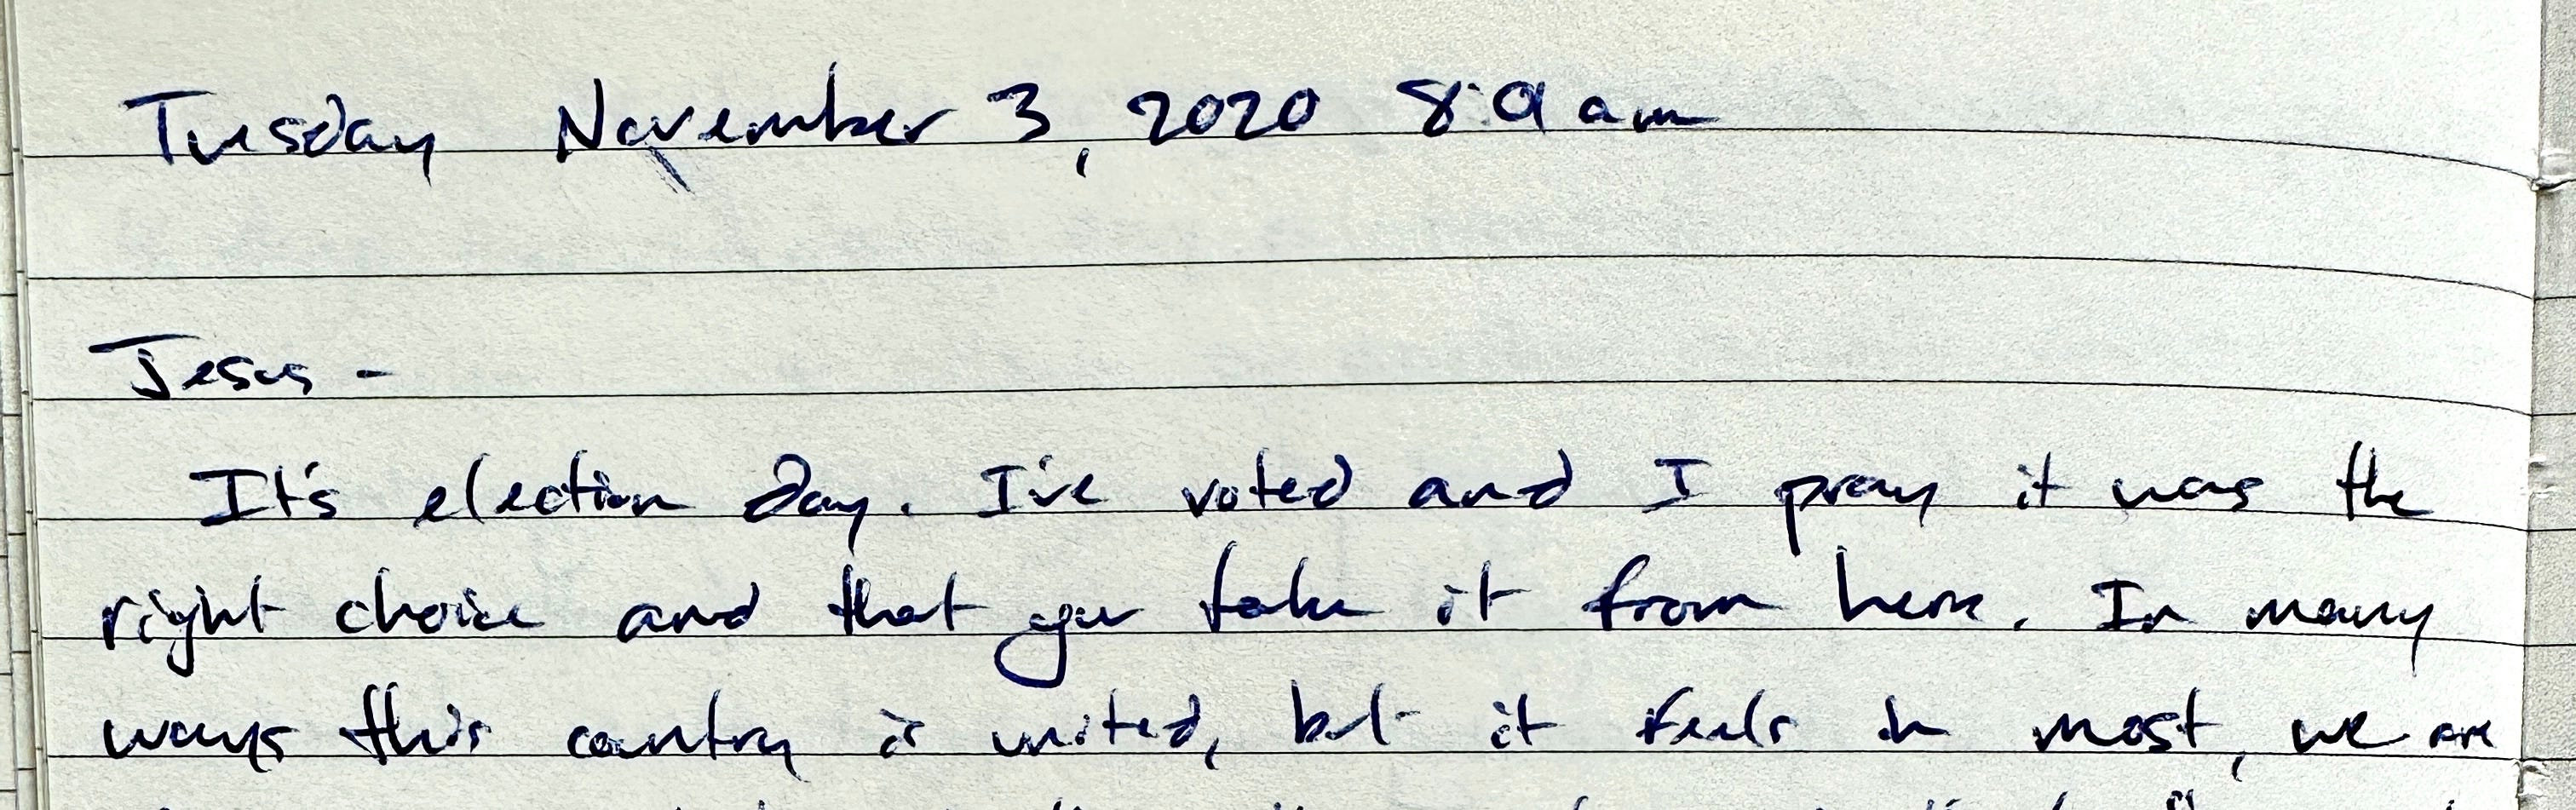 Tuesday November 3, 2020 8:01 am
Jesus -
It's election day. I've voted and I pray it was the
right choice and that you take it from here. In many
ways this country is united, but it feels in most, we are